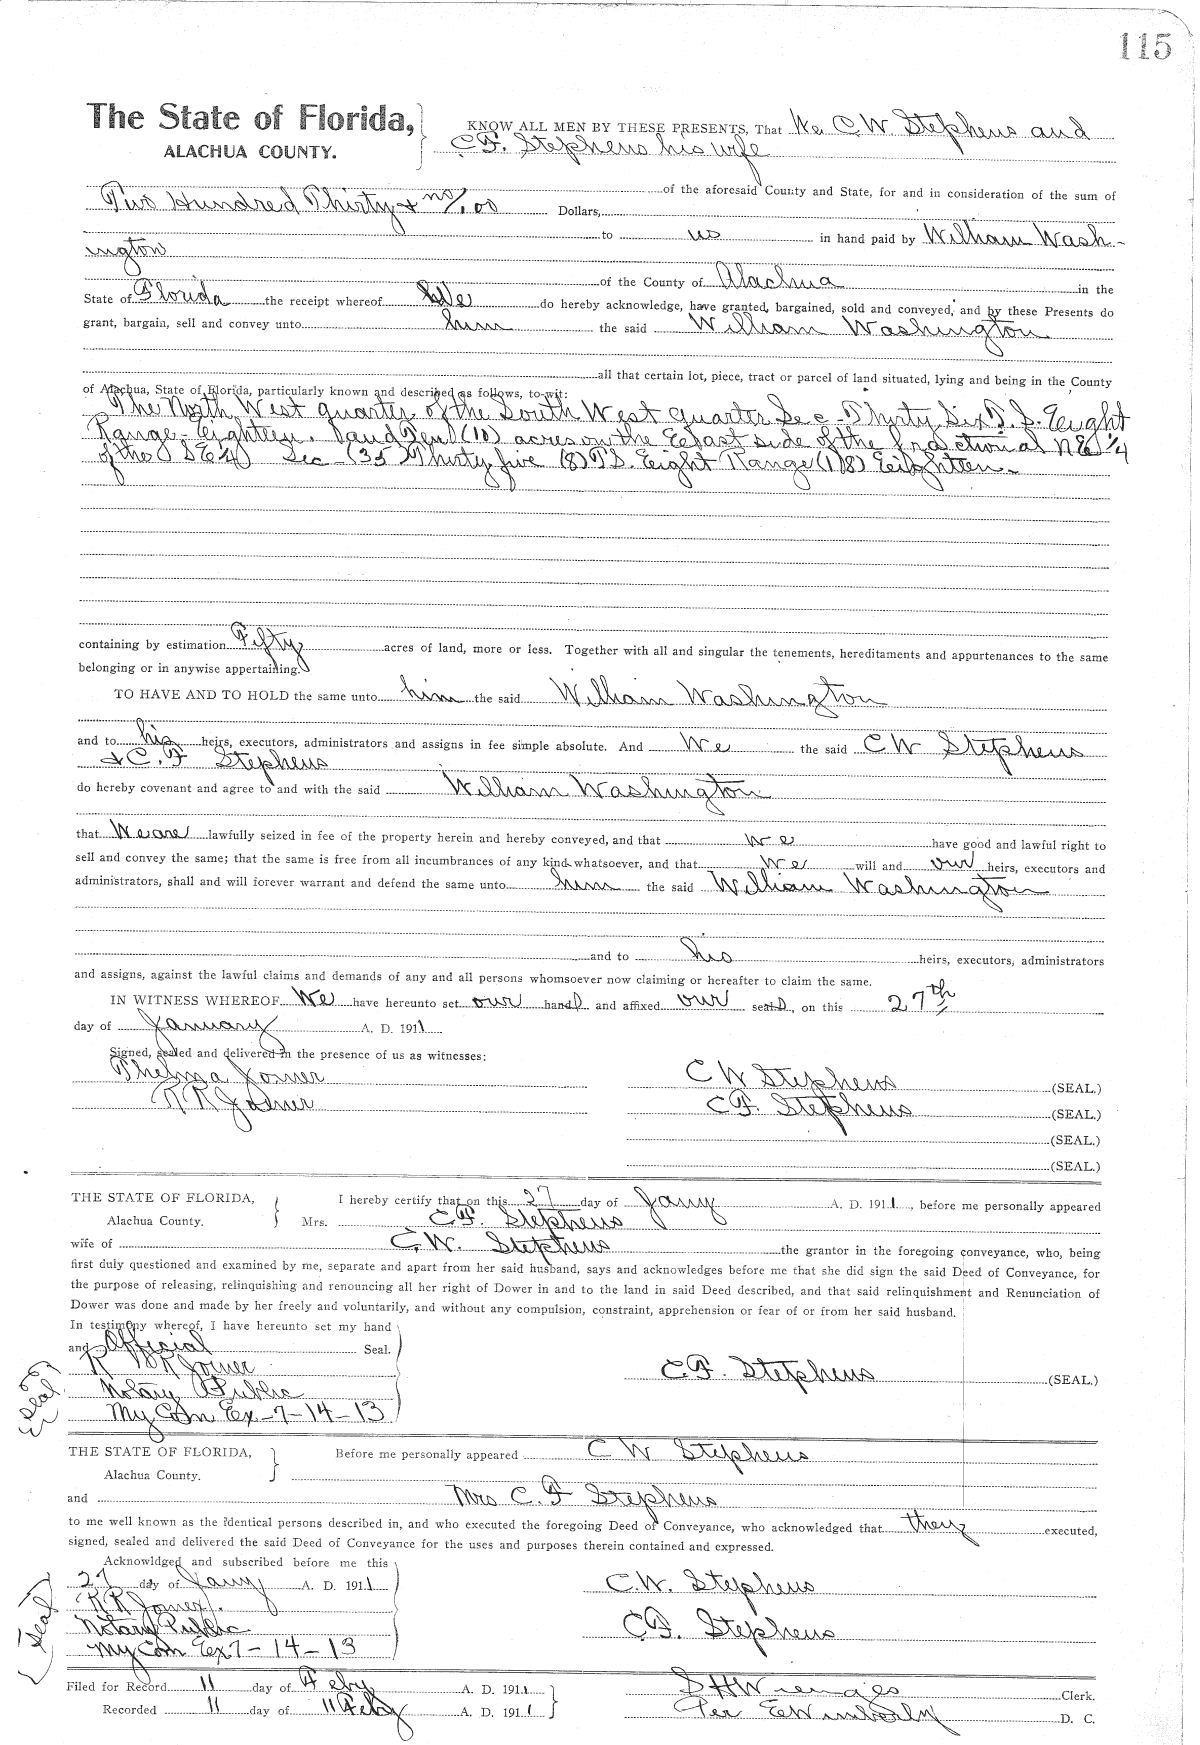 115
The State of Florida,
ALACHUA COUNTY.
KNOW ALL MEN BY THESE PRESENTS, That We C W Stephens and
C F. Stephens his wife
of the aforesaid County and State, for and in consideration of the sum of
Two Hundred Thirty & no/100 Dollars,
to us in hand paid by William Wash-
ington
of the County of Alachua in the
State of Florida the receipt whereof We do hereby acknowledge, have granted, bargained, sold and conveyed, and by these Presents do
grant, bargain, sell and convey unto him the said William Washington
all that certain lot, piece, tract or parcel of land situated, lying and being in the County
of Alachua, State of Florida, particularly known and described as follows, to-wit:
The North West quarter of the South West quarter Sec - Thirty Six T. S. Eeight
Range - Eighteen. (and Ten) (10) acres on the Eeast side of the fractional N E 1/4
of the S E 4 Sec - (35) Thirty five (8) T S. Eight Range (18) Eighteen -
containing by estimation Fifty acres of land, more or less. Together with all and singular the tenements, hereditaments and appurtenances to the same
belonging or in anywise appertaining.
TO HAVE AND TO HOLD the same unto him the said William Washington
and to his heirs, executors, administrators and assigns in fee simple absolute. And We the said C W Stephens
& C. F Stephens
do hereby covenant and agree to and with the said William Washington
that We are lawfully seized in fee of the property herein and hereby conveyed, and that we have good and lawful right to
sell and convey the same; that the same is free from all incumbrances of any kind whatsoever, and that we will and our heirs, executors and
administrators, shall and will forever warrant and defend the same unto him the said William Washington
and to his heirs, executors, administrators
and assigns, against the lawful claims and demands of any and all persons whomsoever now claiming or hereafter to claim the same.
IN WITNESS WHEREOF We have hereunto set our hands and affixed our seals, on this 27th
day of January A. D. 1911
Signed, sealed and delivered in the presence of us as witnesses:
Thelma Joiner C W Stephens (SEAL.)
R R Joiner C F. Stephens (SEAL.)
(SEAL.)
(SEAL.)
THE STATE OF FLORIDA,
Alachua County.
I hereby certify that on this 27 day of Jany A. D. 1911, before me personally appeared
Mrs. C F. Stephens
wife of C. W. Stephens the grantor in the foregoing conveyance, who, being
first duly questioned and examined by me, separate and apart from her said husband, says and acknowledges before me that she did sign the said Deed of Conveyance, for
the purpose of releasing, relinquishing and renouncing all her right of Dower in and to the land in said Deed described, and that said relinquishment and Renunciation of
Dower was done and made by her freely and voluntarily, and without any compulsion, constraint, apprehension or fear of or from her said husband.
In testimony whereof, I have hereunto set my hand
and Official Seal.
R R Joiner C. F. Stephens (SEAL.)
(Seal)
Notary Public
My Com Ex - 7 - 14 - 13
THE STATE OF FLORIDA,
Alachua County.
Before me personally appeared C W Stephens
and Mrs C. F Stephens
to me well known as the identical persons described in, and who executed the foregoing Deed of Conveyance, who acknowledged that they executed,
signed, sealed and delivered the said Deed of Conveyance for the uses and purposes therein contained and expressed.
Acknowldged and subscribed before me this
27 day of Jany A. D. 1911 C. W. Stephens
R R Joiner.
(Seal)
Notary Public C F. Stephens
My Com Ex 7 - 14 - 13
Filed for Record 11 day of Feby A. D. 1911 S H Wienges Clerk.
Recorded 11 day of 11 Feby A. D. 1911 Per E Wimberly D. C.